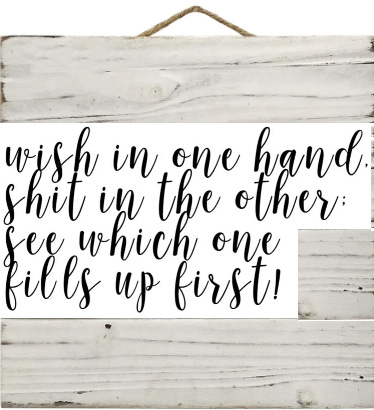 wish in one hand,
shit in the other;
see which one
fills up first!